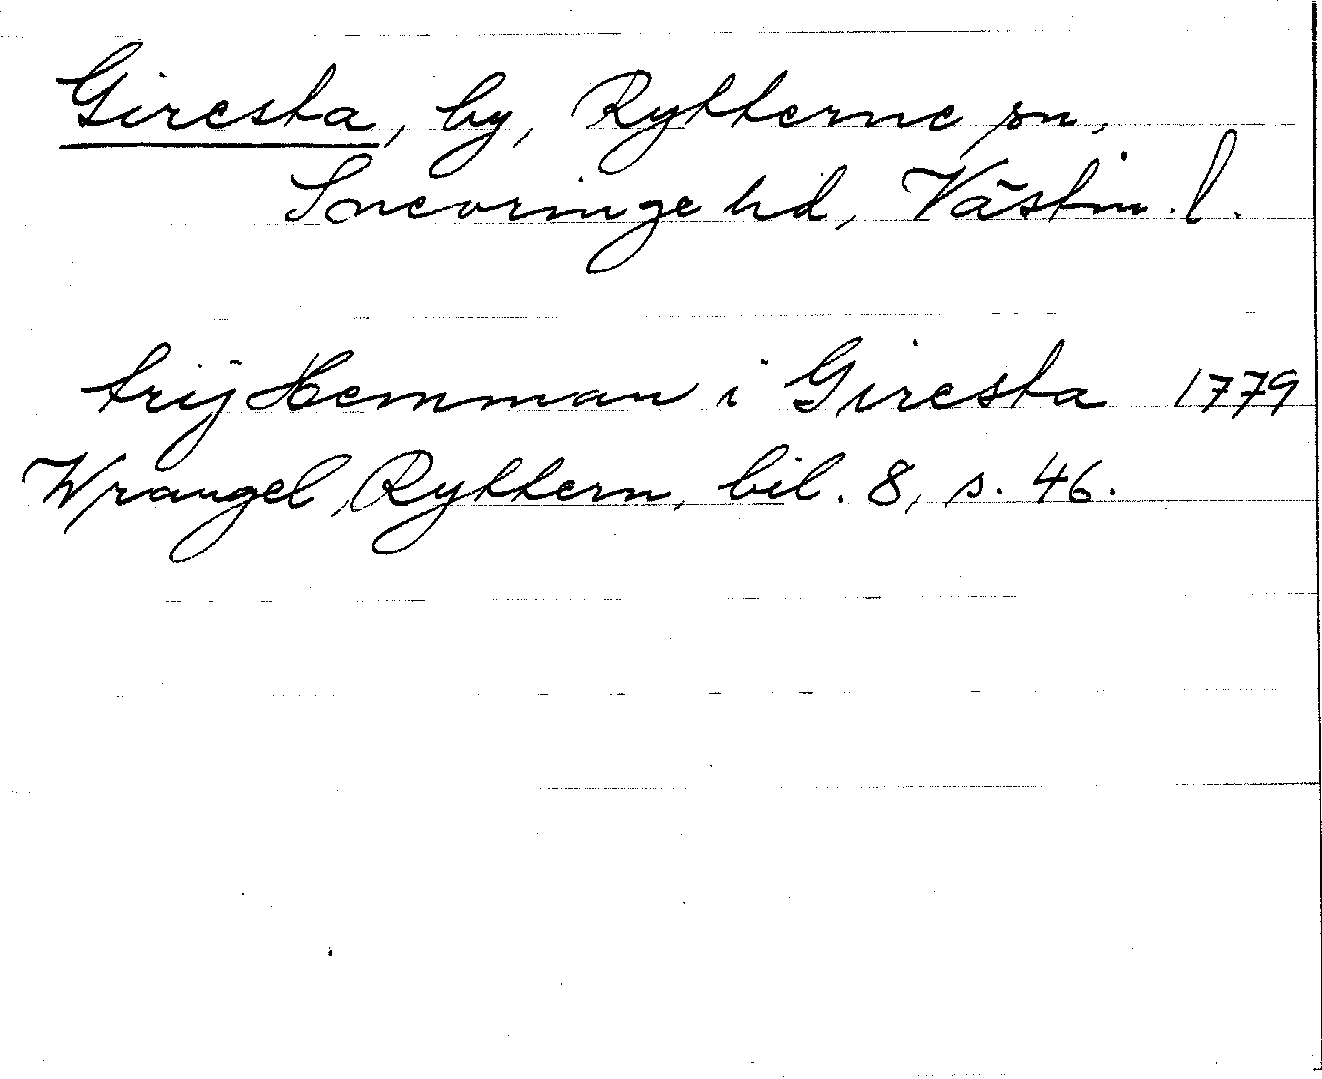 Giresta, by, Rytterne sn,
Snevringe hd, Västm. l.
trij Hemman i Giresta 1779
Wrangel, Ryttern, bil. 8, s. 46.